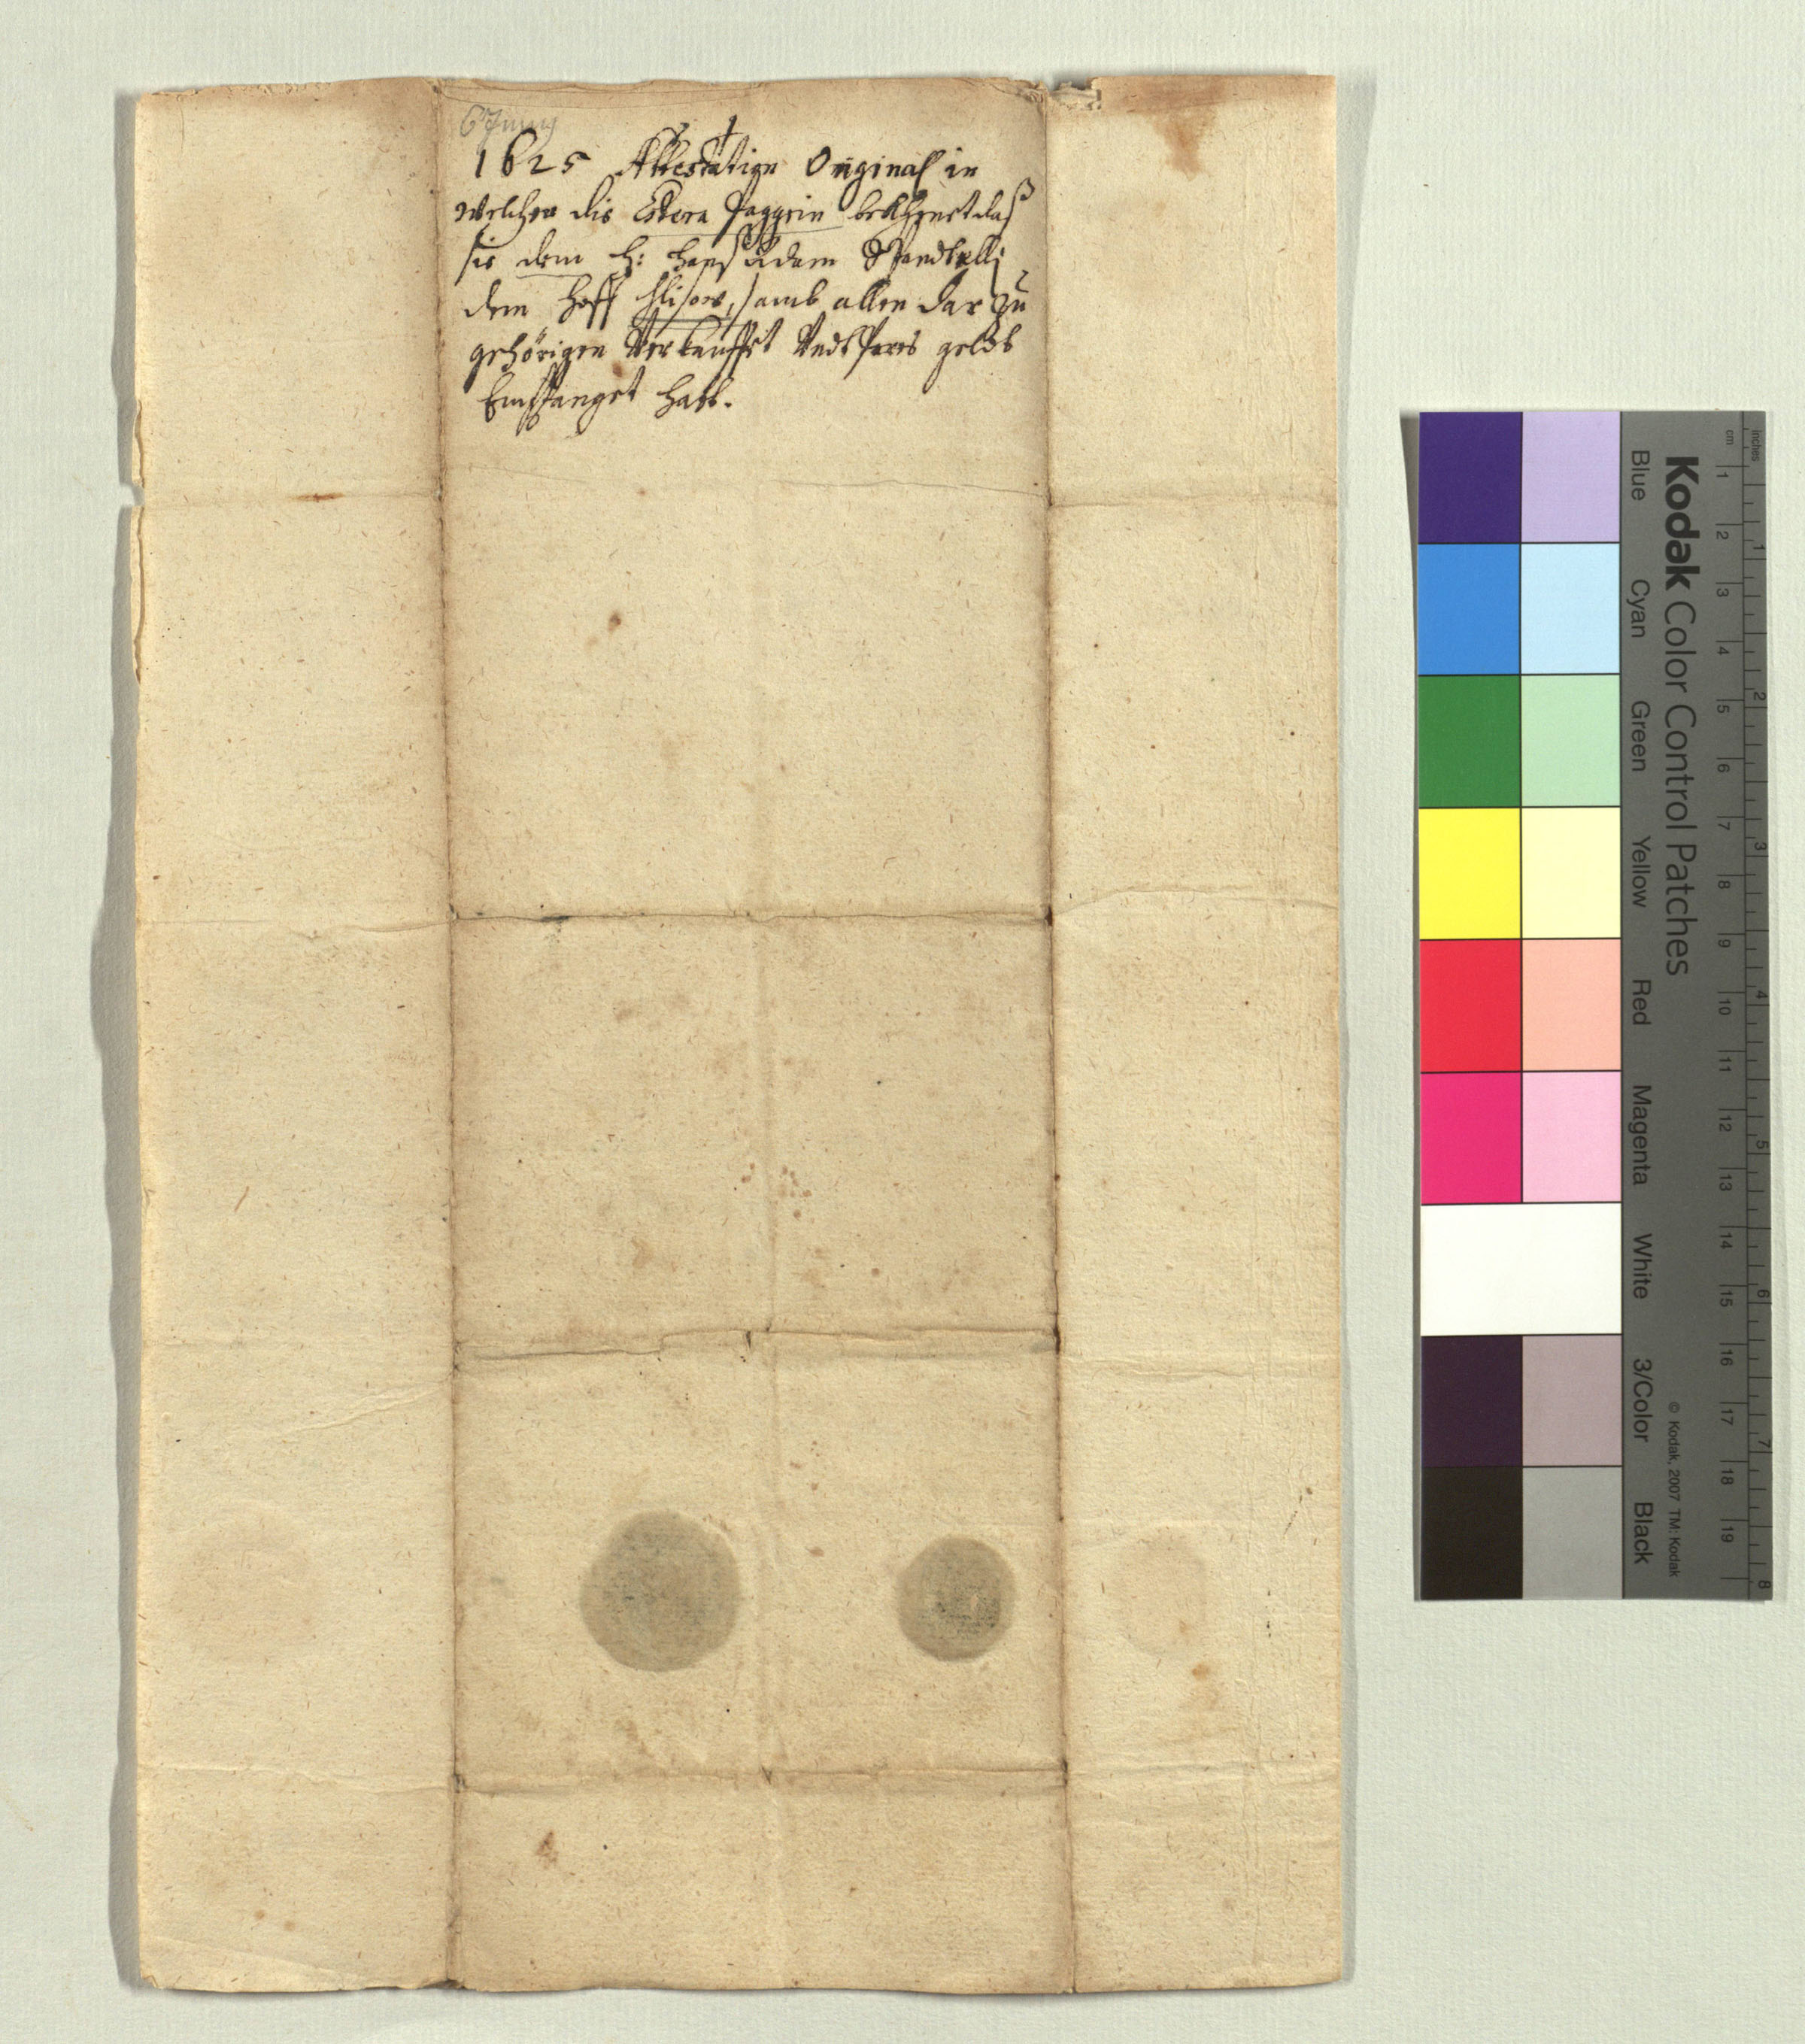 6 Juny
1625 Attestation Original in
welcher die Estera Jaggrin bekhenet daß
sie dem H: Hanß Adam
dem Hoff samb allen dar zu
gehörigen Verkaufft Vndt Ihres geldt
Empfanget hatt.
Kodak Color Control Patches
Blue Cyan Green Yellow Red Magenta White 3/Color Black
© Kodak, 2007 TM: Kodak
inches 1 2 3 4 5 6 7 8
cm 1 2 3 4 5 6 7 8 9 10 11 12 13 14 15 16 17 18 19